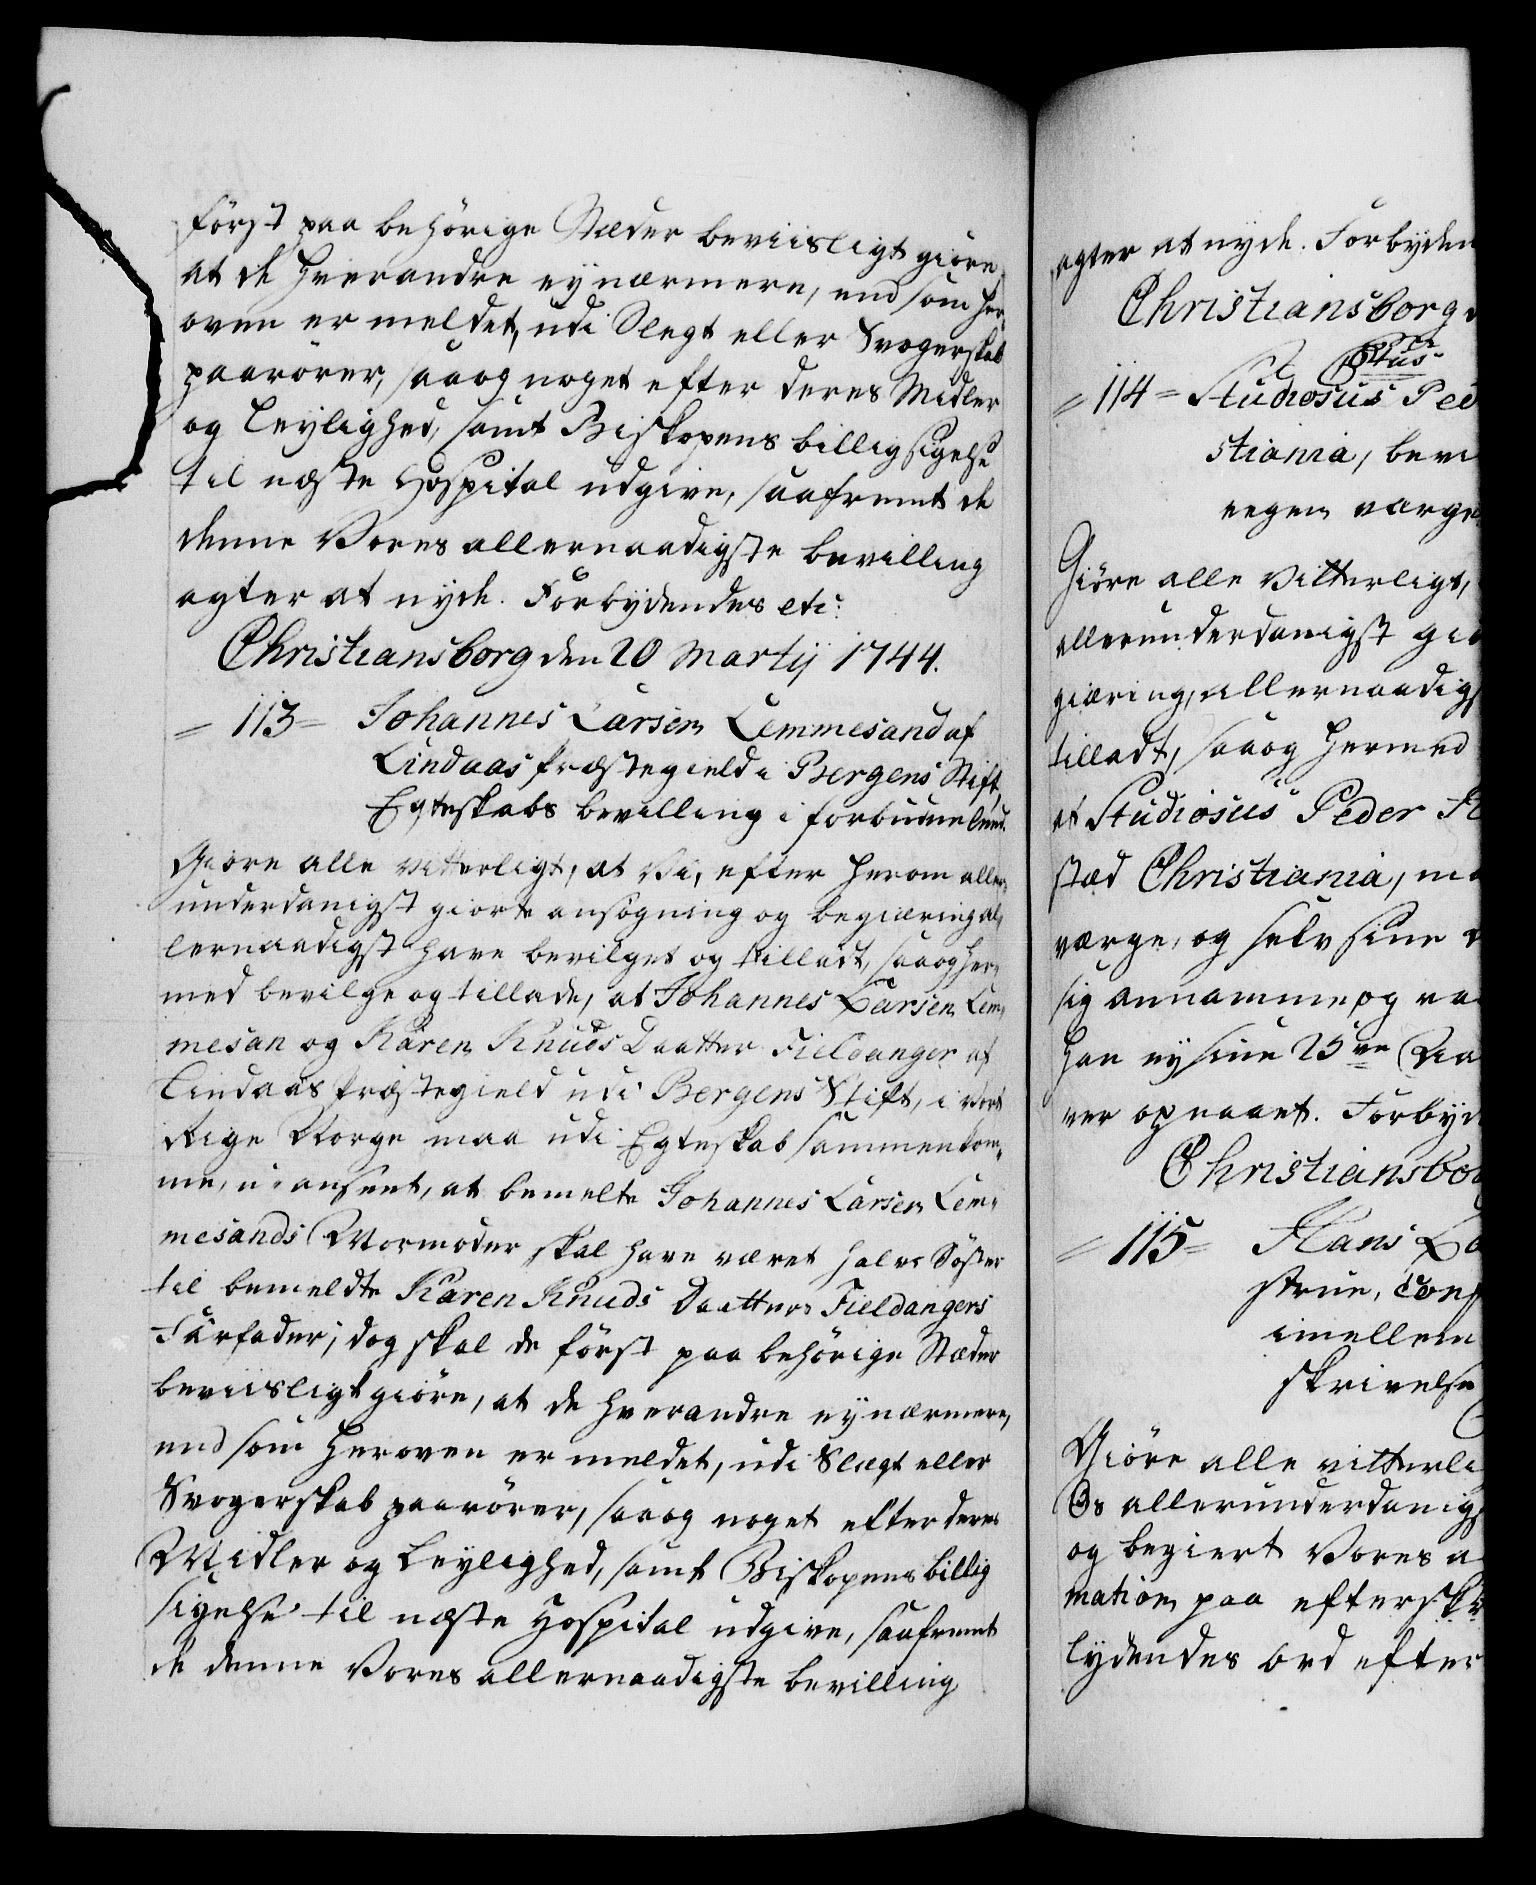 först paa behörige Stæder beviisligt giöre,
at de hverandre ey nærmere, end som her¬
oven er meldet, udi Slegt eller Svogerskab
paarörer, saa og noget efter deres Midler
og Leylighed, samt Biskopens billig sigelse
til næste Hospital udgive, saafremt de
denne Vores allernaadigste bevilling
agter at nyde. Forbydendes etc:
Christiansborg den 20 Martij 1744.
= 113 = Johannes Larsen Lemmesand af
Lindaas Præstegield i Bergens Stift,
Egteskabs bevilling i forbudne Leed.
Giöre alle vitterligt, at Vi, efter herom aller¬
underdanigst giorte ansögning og begiæring al¬
lernaadigst have bevilget og tilladt, saa og her¬
med bevilge og tillade, at Johannes Larsen Lem¬
mesan og Karen Knuds Daatter Fieldanger af
Lindaas Præstegield udi Bergens Stift, i vort
Rige Norge maa udi Egteskab sammenkom¬
me, uanseet, at bemelte Johannes Larsen Lem¬
mesands Mormoder skal have været halv Söster
til bemeldte Karen Knuds Daatters Fieldangers
Farfader; dog skal de först paa behörige Stæder
beviisligt giöre, at de hverandre ey nærmere,
end som heroven er meldet, udi Slægt eller
Svogerskab paarörer, saa og noget efter deres
Midler og Leylighed, samt Biskopens billig
sigelse til næste Hospital udgive, saafremt
de denne Vores allernaadigste bevilling
agter at nyde. Forbyden
Christiansborg
= 114 = Studiosus Ped
stiania, bevi
eegen værge
Giöre alle vitterligt,
allerunderdanigst gio
giæring, allernaadigs
tilladt, saa og hermed
at Studiosus Peder
stad Christiania, ma
værge, og selv sine
sig annamme, og ra
han ey sine 25ve Aa
ver opnaaet. Forbyd
Christiansbor
= 115 = Hans La
strue, Conf
imellem
skrivelse
Giöre alle vitterli
Os allerunderdanigs
og begiert Vores a
mation paa efterskr
lydendes ord efter